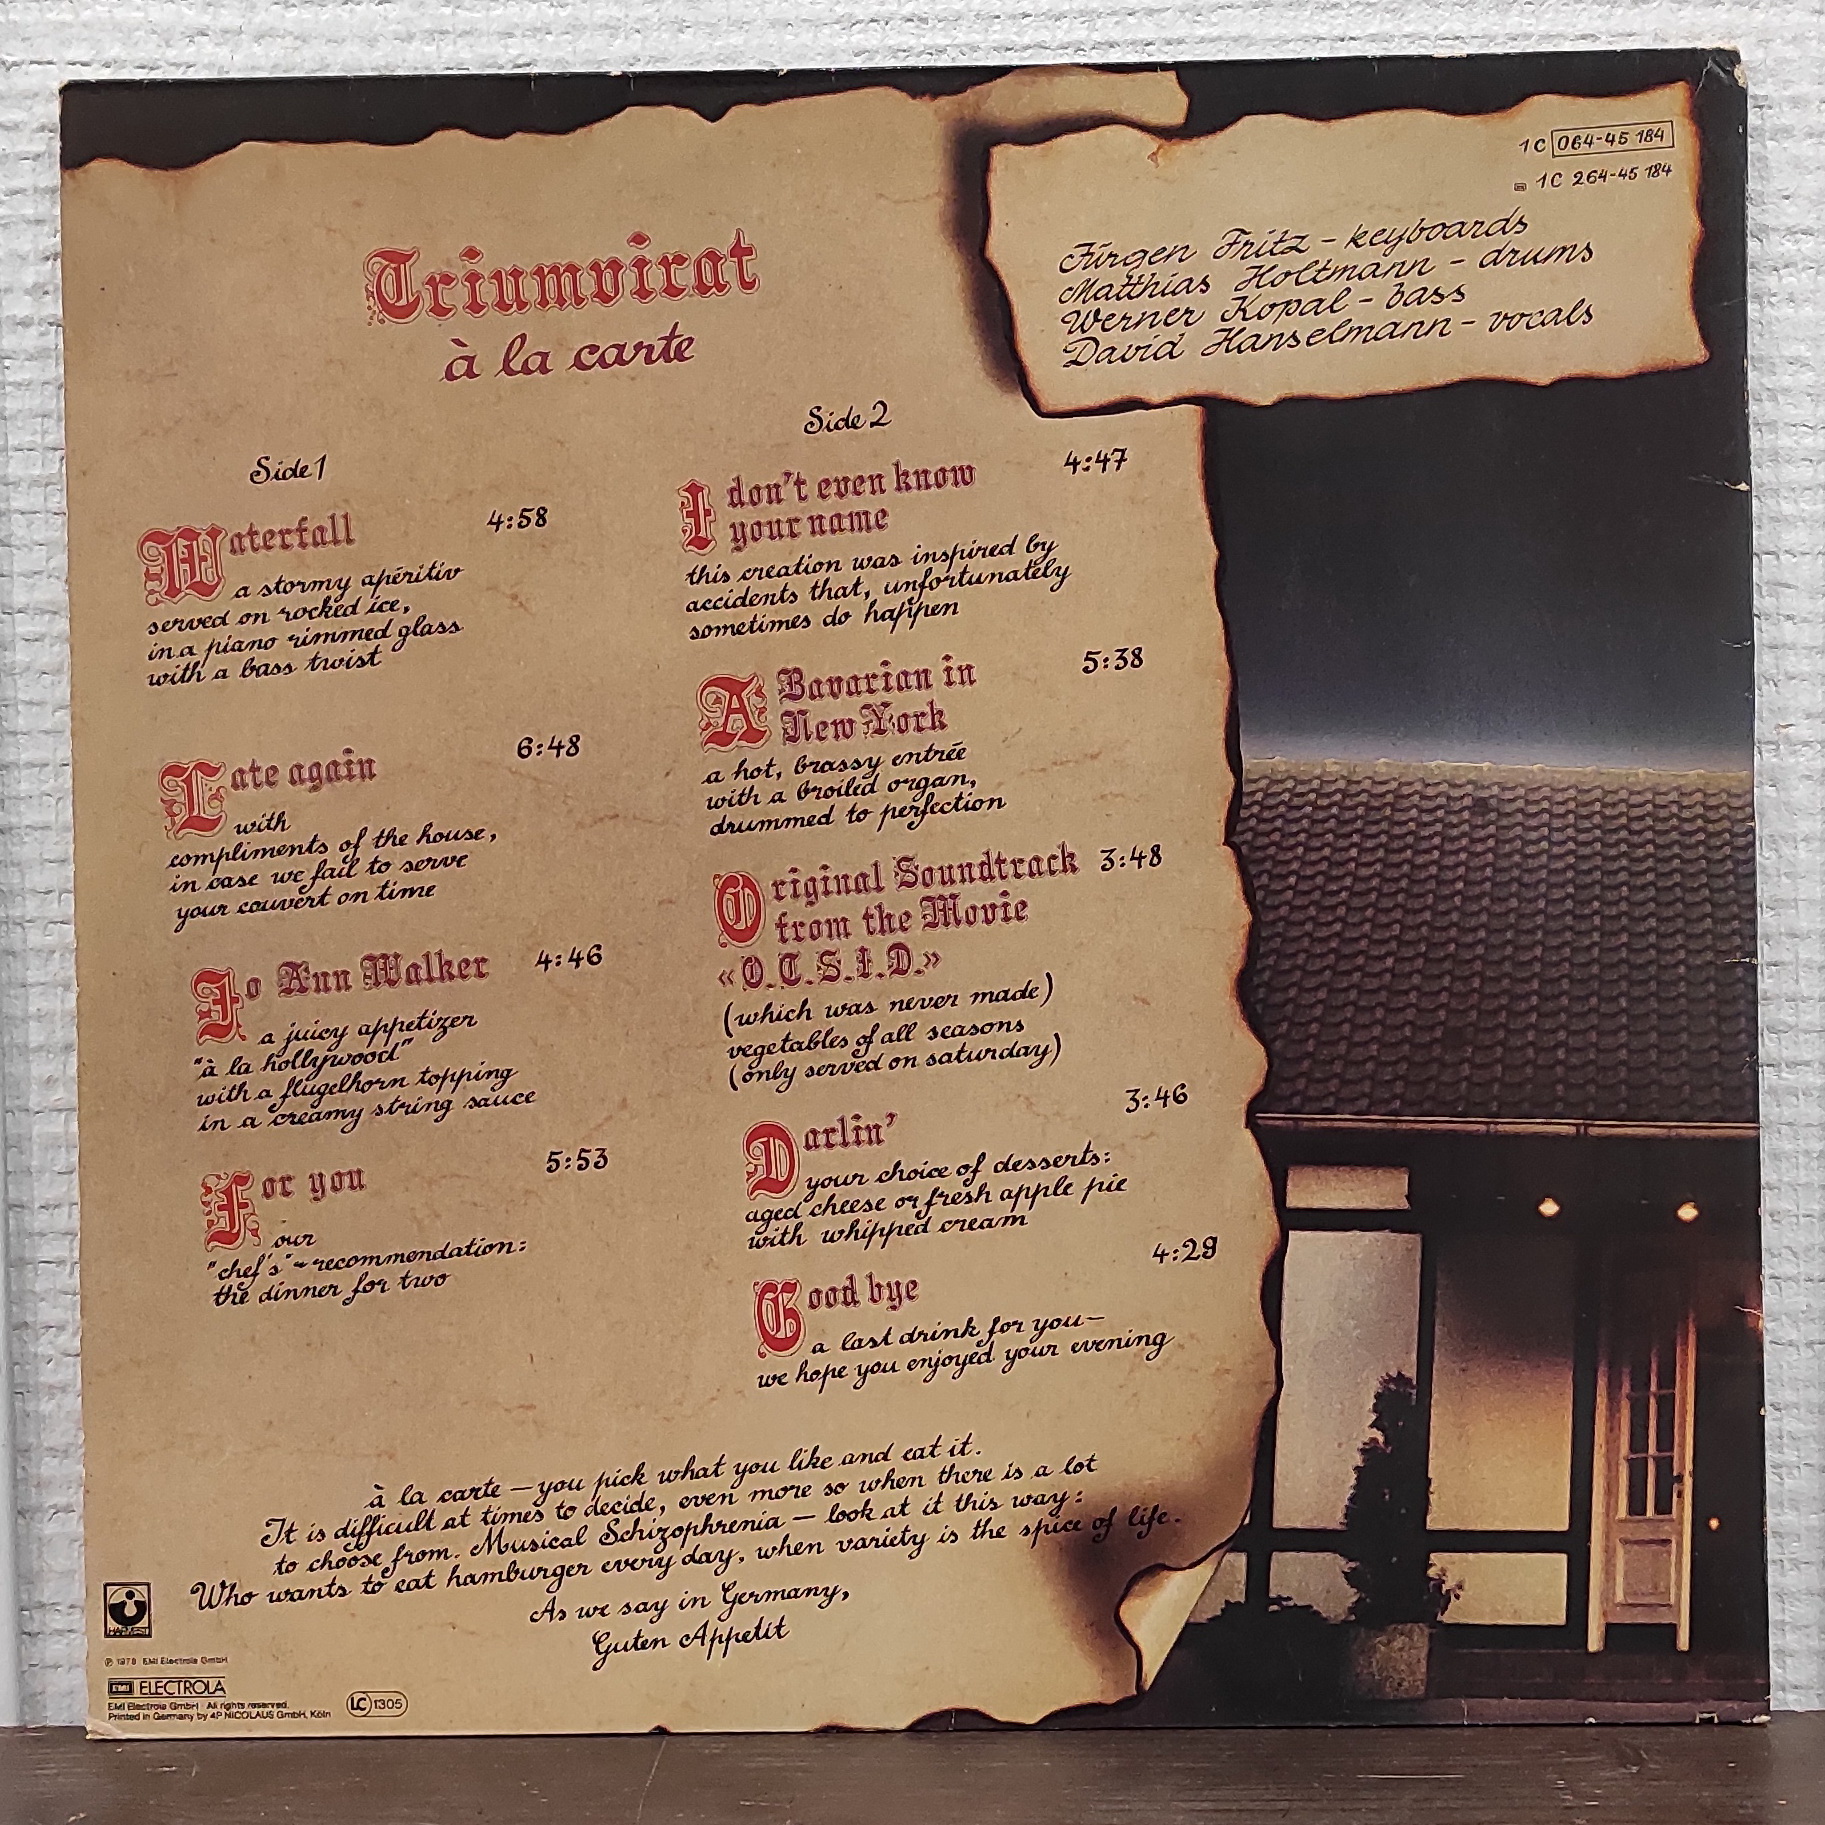 1C 064-45 184
1C 264-45 184
Jürgen Fritz - keyboards
Matthias Holtmann - drums
Werner Kopal - bass
David Hanselmann - vocals
Triumvirat
à la carte
Side 1
Waterfall 4:58
a stormy apéritiv
served on rocked ice,
in a piano rimmed glass
with a bass twist
Late again 6:48
with
compliments of the house,
in case we fail to serve
your couvert on time
Jo Ann Walker 4:46
a juicy appetizer
"à la hollywood"
with a flugelhorn topping
in a creamy string sauce
For you 5:53
our
"chef's"-recommendation:
the dinner for two
Side 2
I don't even know 4:47
your name
this creation was inspired by
accidents that, unfortunately
sometimes do happen
A Bavarian in 5:38
New York
a hot, brassy entrée
with a broiled organ,
drummed to perfection
Original Soundtrack 3:48
from the Movie
«O.C.S.I.D.»
(which was never made)
vegetables of all seasons
(only served on saturday)
Darlin' 3:46
your choice of desserts:
aged cheese or fresh apple pie
with whipped cream
Good bye 4:29
a last drink for you-
we hope you enjoyed your evening
à la carte - you pick what you like and eat it.
It is difficult at times to decide, even more so when there is a lot
to choose from. Musical Schizophrenia - look at it this way:
Who wants to eat hamburger every day, when variety is the spice of life.
As we say in Germany,
Guten Appetit
HARVEST
℗ 1978 EMI Electrola GmbH
EMI ELECTROLA
EMI Electrola GmbH · All rights reserved.
Printed in Germany by 4P NICOLAUS GmbH, Köln
LC 1305